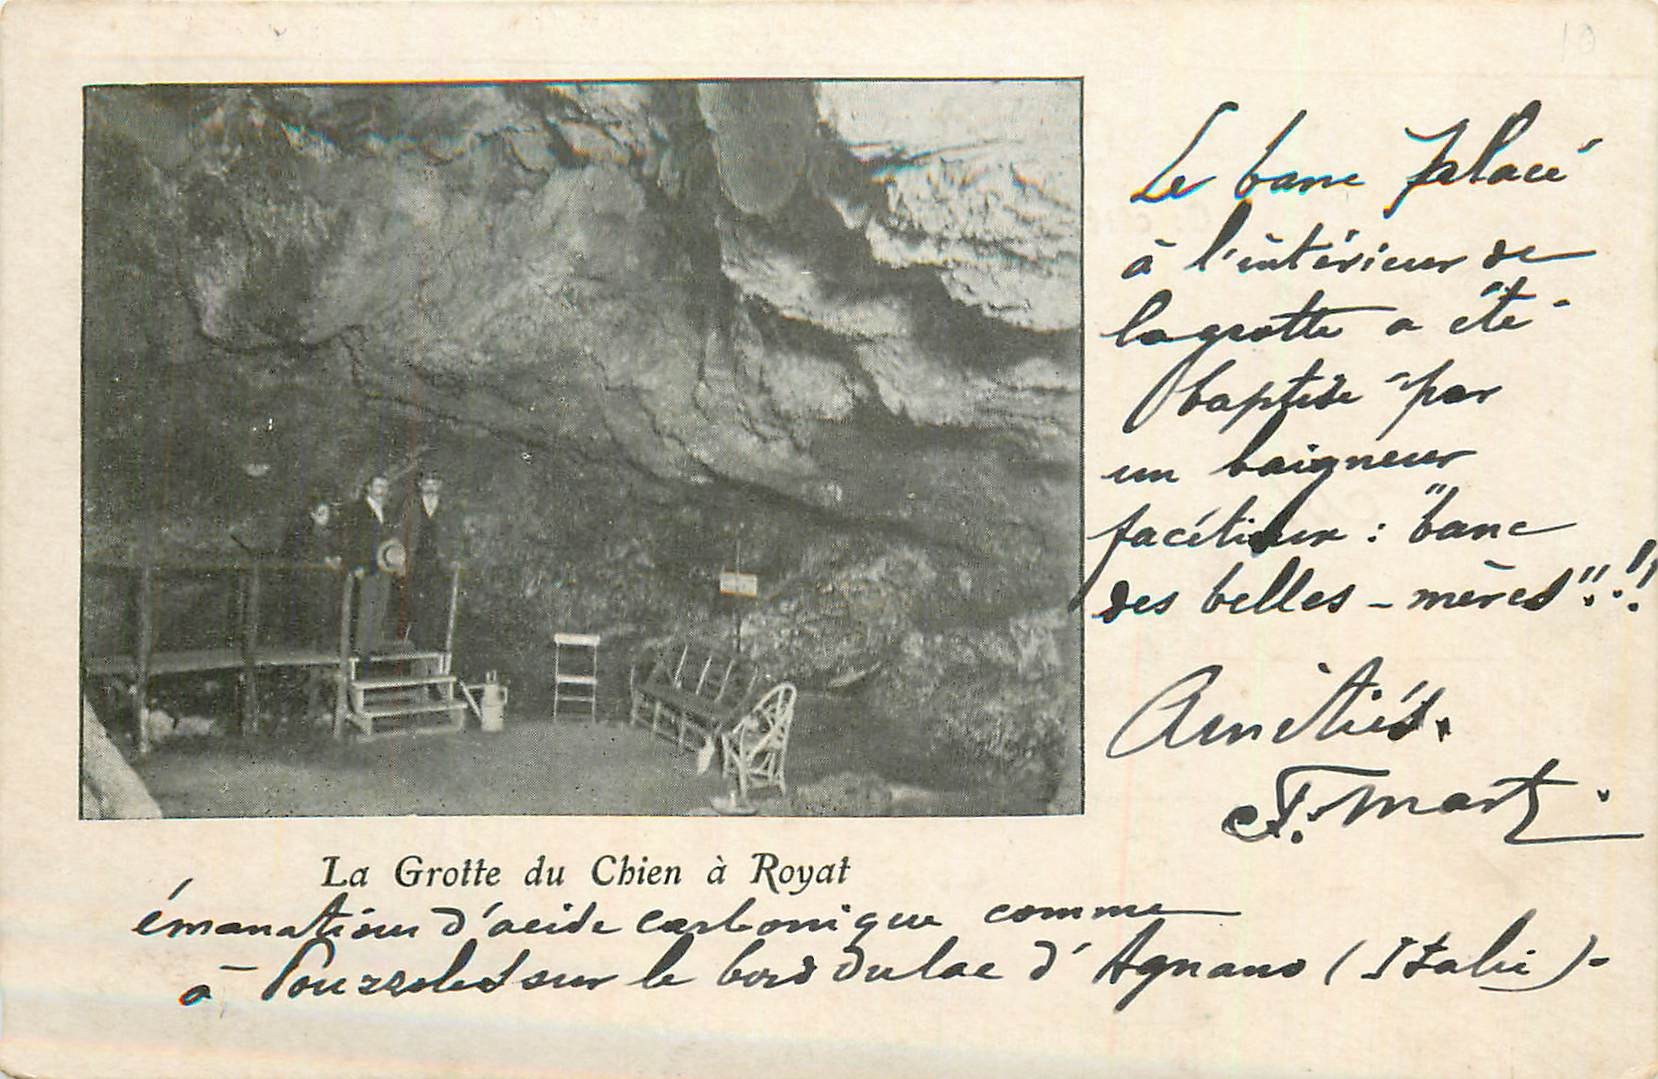 Le banc placé
à l'intérieur de
la grotte a été
baptisé par
un baigneur
facétieux : "banc
des belles-mères"!!!
Amitiés.
F. Marty.
La Grotte du Chien à Royat
émanations d'acide carbonique comme
à Pouzzoles sur le bord du lac d'Agnano (Italie)-